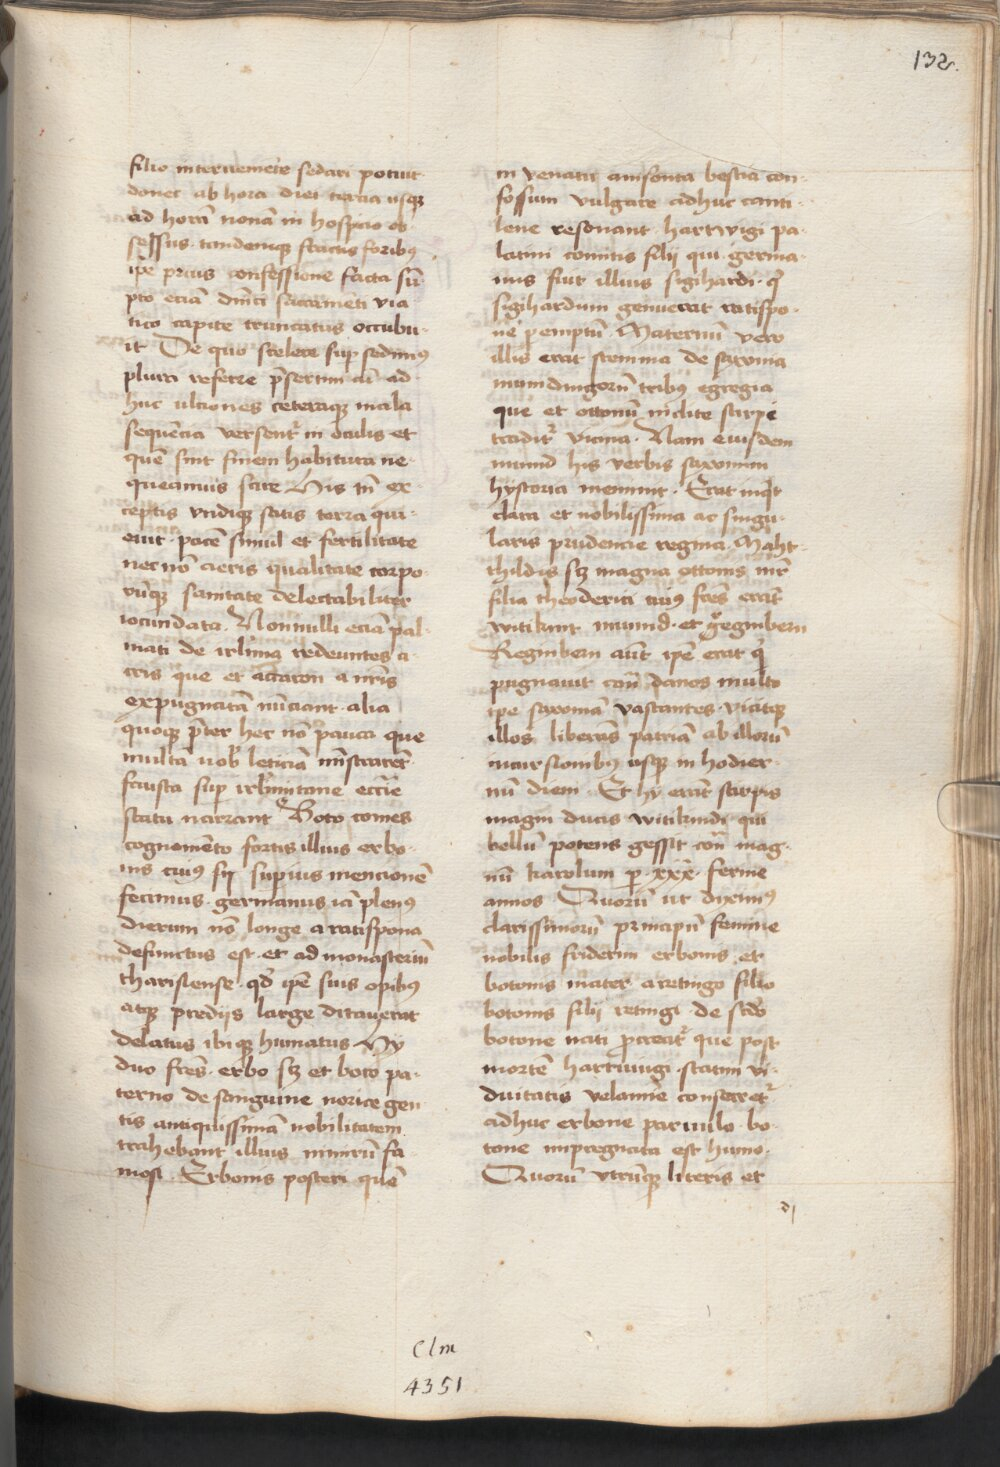 132.
filio interveniente sedari potuit
donec ab hora diei tercia usqꝫ
ad horā nonā in hospicio ob-
sessus. tandemqꝫ fractis foribꝰ
ip̄e prius confessione facta sū-
pto eciā dn̄ici sacramēti via
tico capite truncatus occubu-
it De quo scelere suꝑ sedimꝰ
plura referre p̄sertim cū ad-
huc ultiones ceteraqꝫ mala
sequēcia versent᷑ in oculis et
quē sint finem habitura ne-
queamus scire His tn̄ ex
ceptis undiqꝫ satis terra qui-
evit. pace simul et fertilitate
nec nō aeris qualitate corpo-
rūqꝫ sanitate delectabiliter
iocundata. Nonnulli eciā pal-
mati de irl̄ima redeuntes a-
cris que et accaron a nr̄is
expugnatā nūciant. alia
quoqꝫ p̄ter hec nō pauca que
multā nob̄ leticiā mīstrarēt
fausta suꝑ irl̄imitane ecc̄ie
statu narrant Boto comes
cognomēto fortis illius erbo-
nis cuiꝰ sꝫ superius mencionē
fecimus. germanus iā plenꝰ
dierum nō longe a ratispona
defunctus est et ad monasteriū
tharisiense qd̄ ip̄e suis opibꝰ
atqꝫ prediis large ditaverat
delatus ibiqꝫ humatus Hy
duo fr̄es. erbo sꝫ et boto pa-
terno de sanguine norice gen
tis antiquissimā nobilitatem
trahebant illius nimirū fa-
mosi. Erbonis posteri quē
in venatu a insonta bestia con-
fossum vulgare adhuc canti-
lene resonant. hartwigi pa-
latini comitis filii qui. germa-
nus fiut illius sigihardi. q̄
sigihardum genuerat ratispo-
ne peremptū Maternū vero
illis erat stemma de saxonia
inmidingorū tribꝰ egregia
que et ottonū inclite stirpi
tradit᷑ vicina. Nam eiusdem
immid his verbis saxonum
hystoria meminit. Erat inqt
clara et nobilissima ac singu-
laris prudencie regina. Maht-
thildis sꝫ magna ottonis mr̄
filia theoderici cuiꝰ fr̄es erāt
witikint immid. et Regimbern
Regimbern aūt ip̄e erat q̄
pugnavit con̄ danos multo
tꝑe saxoniā vastantes. vicitqꝫ
illos liberās patriā ab illorū
incursionibꝰ usqꝫ in hodier-
nū diem. Et hy erāt stirpis
magni ducis witikindi qui
bellū potens gessit con̄ mag-
nū karolum ꝑ xxx. ferme
annos Quorū ut diximꝰ
clarissimorū principū femine
nobilis friderun erbonis et
botonis mater a retingo filio
botonis filii retingi de scd̄o
botone nati procreat᷑ que post
mortē hartwigi. statim vi-
duitatis velamine consecret᷑
adhuc erbone parvulo. bo-
tone impregnata est humo.
Quorū utrūqꝫ literis et
Clm
4351